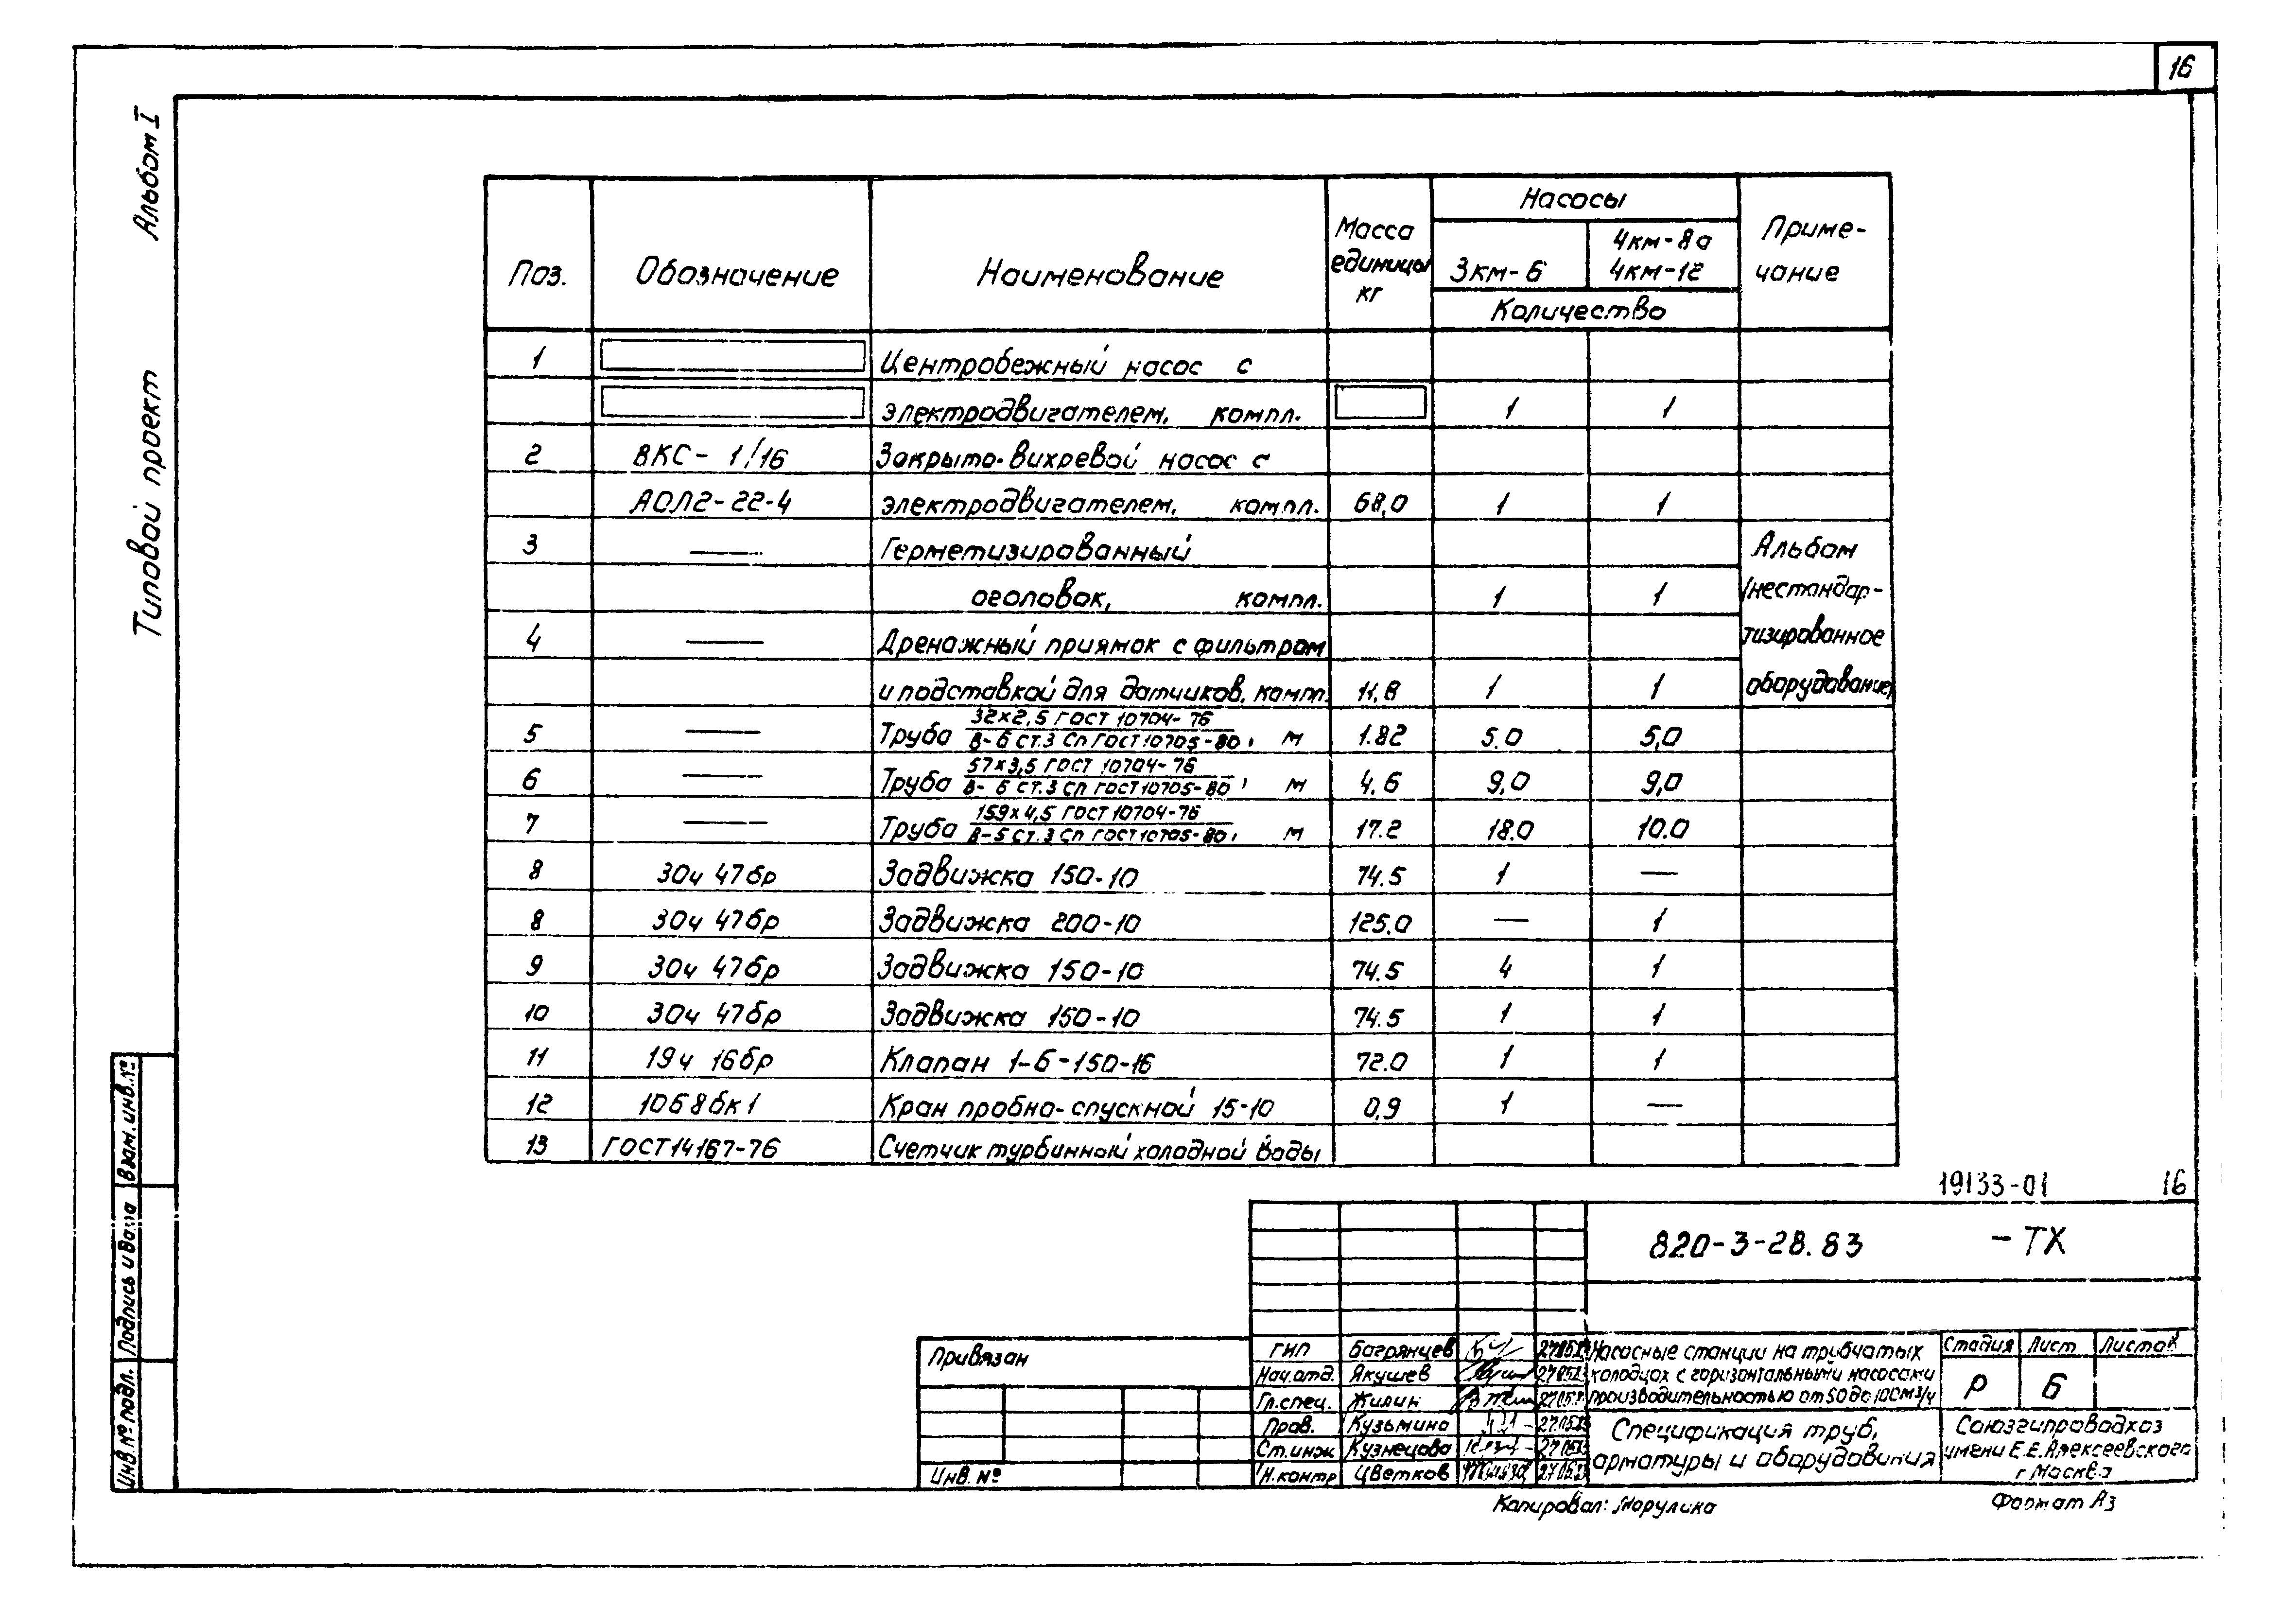 16
Альбом I
Типовой проект
Поз. Обозначение Наименование Масса единицы кг Насосы Приме-чание
3км-6 4км-8а 4км-12
Количество
1 Центробежный насос с
электродвигателем, компл. 1 1
2 ВКС-1/16 Закрыто-вихревой насос с
АОЛ2-22-4 электродвигателем, компл. 68,0 1 1
3 — Герметизированный Альбом
оголовок, компл. 1 1 (нестандар-
4 — Дренажный приямок с фильтром тизированное
и подставкой для датчиков, компл. 11,8 1 1 оборудование)
5 — Труба 32×2,5 ГОСТ 10704-76 / В-6 ст.3 сп ГОСТ 10705-80, м 1.82 5.0 5,0
6 — Труба 57×3,5 ГОСТ 10704-76 / В-6 ст.3 сп ГОСТ 10705-80, м 4.6 9,0 9,0
7 — Труба 159×4,5 ГОСТ 10704-76 / В-5 ст.3 сп ГОСТ 10705-80, м 17.2 18.0 10.0
8 30ч 47бр Задвижка 150-10 74.5 1 —
8 30ч 47бр Задвижка 200-10 125.0 — 1
9 30ч 47бр Задвижка 150-10 74.5 4 1
10 30ч 47бр Задвижка 150-10 74.5 1 1
11 19ч 16бр Клапан 1-6-150-16 72.0 1 1
12 10б8бк1 Кран пробно-спускной 15-10 0,9 1 —
13 ГОСТ 14167-76 Счетчик турбинный холодной воды
19133-01 16
820-3-28.83 -ТХ
Привязан
Инв. №
ГИП Багрянцев
Нач.отд. Якушев
Гл.спец. Жилин
Пров. Кузьмина
Ст.инж Кузнецова
Н.контр Цветков
Насосные станции на трубчатых
колодцах с горизонтальными насосами
производительностью от 50 до 100 м3/ч
Стадия Лист Листов
Р 6
Спецификация труб,
арматуры и оборудования
Союзгипроводхоз
имени Е.Е.Алексеевского
г Москва
Копировал: Марулина
Формат А3
Инв.№ подл. Подпись и дата Взам.инв.№